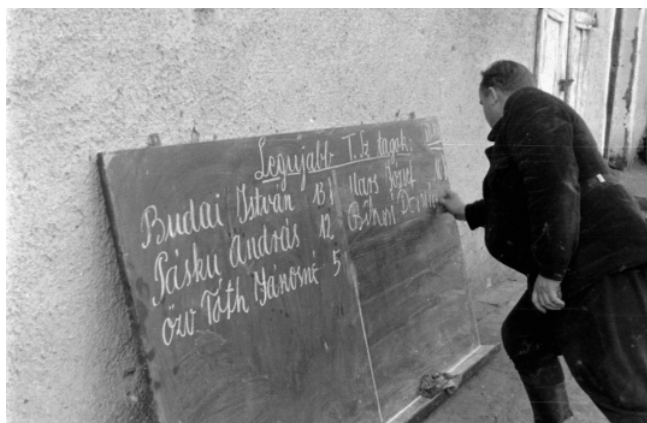 Legújabb T. Sz tagok:
Budai István 13
Pásku András 12
özv Tóth Jánosné 5
József
Böhm